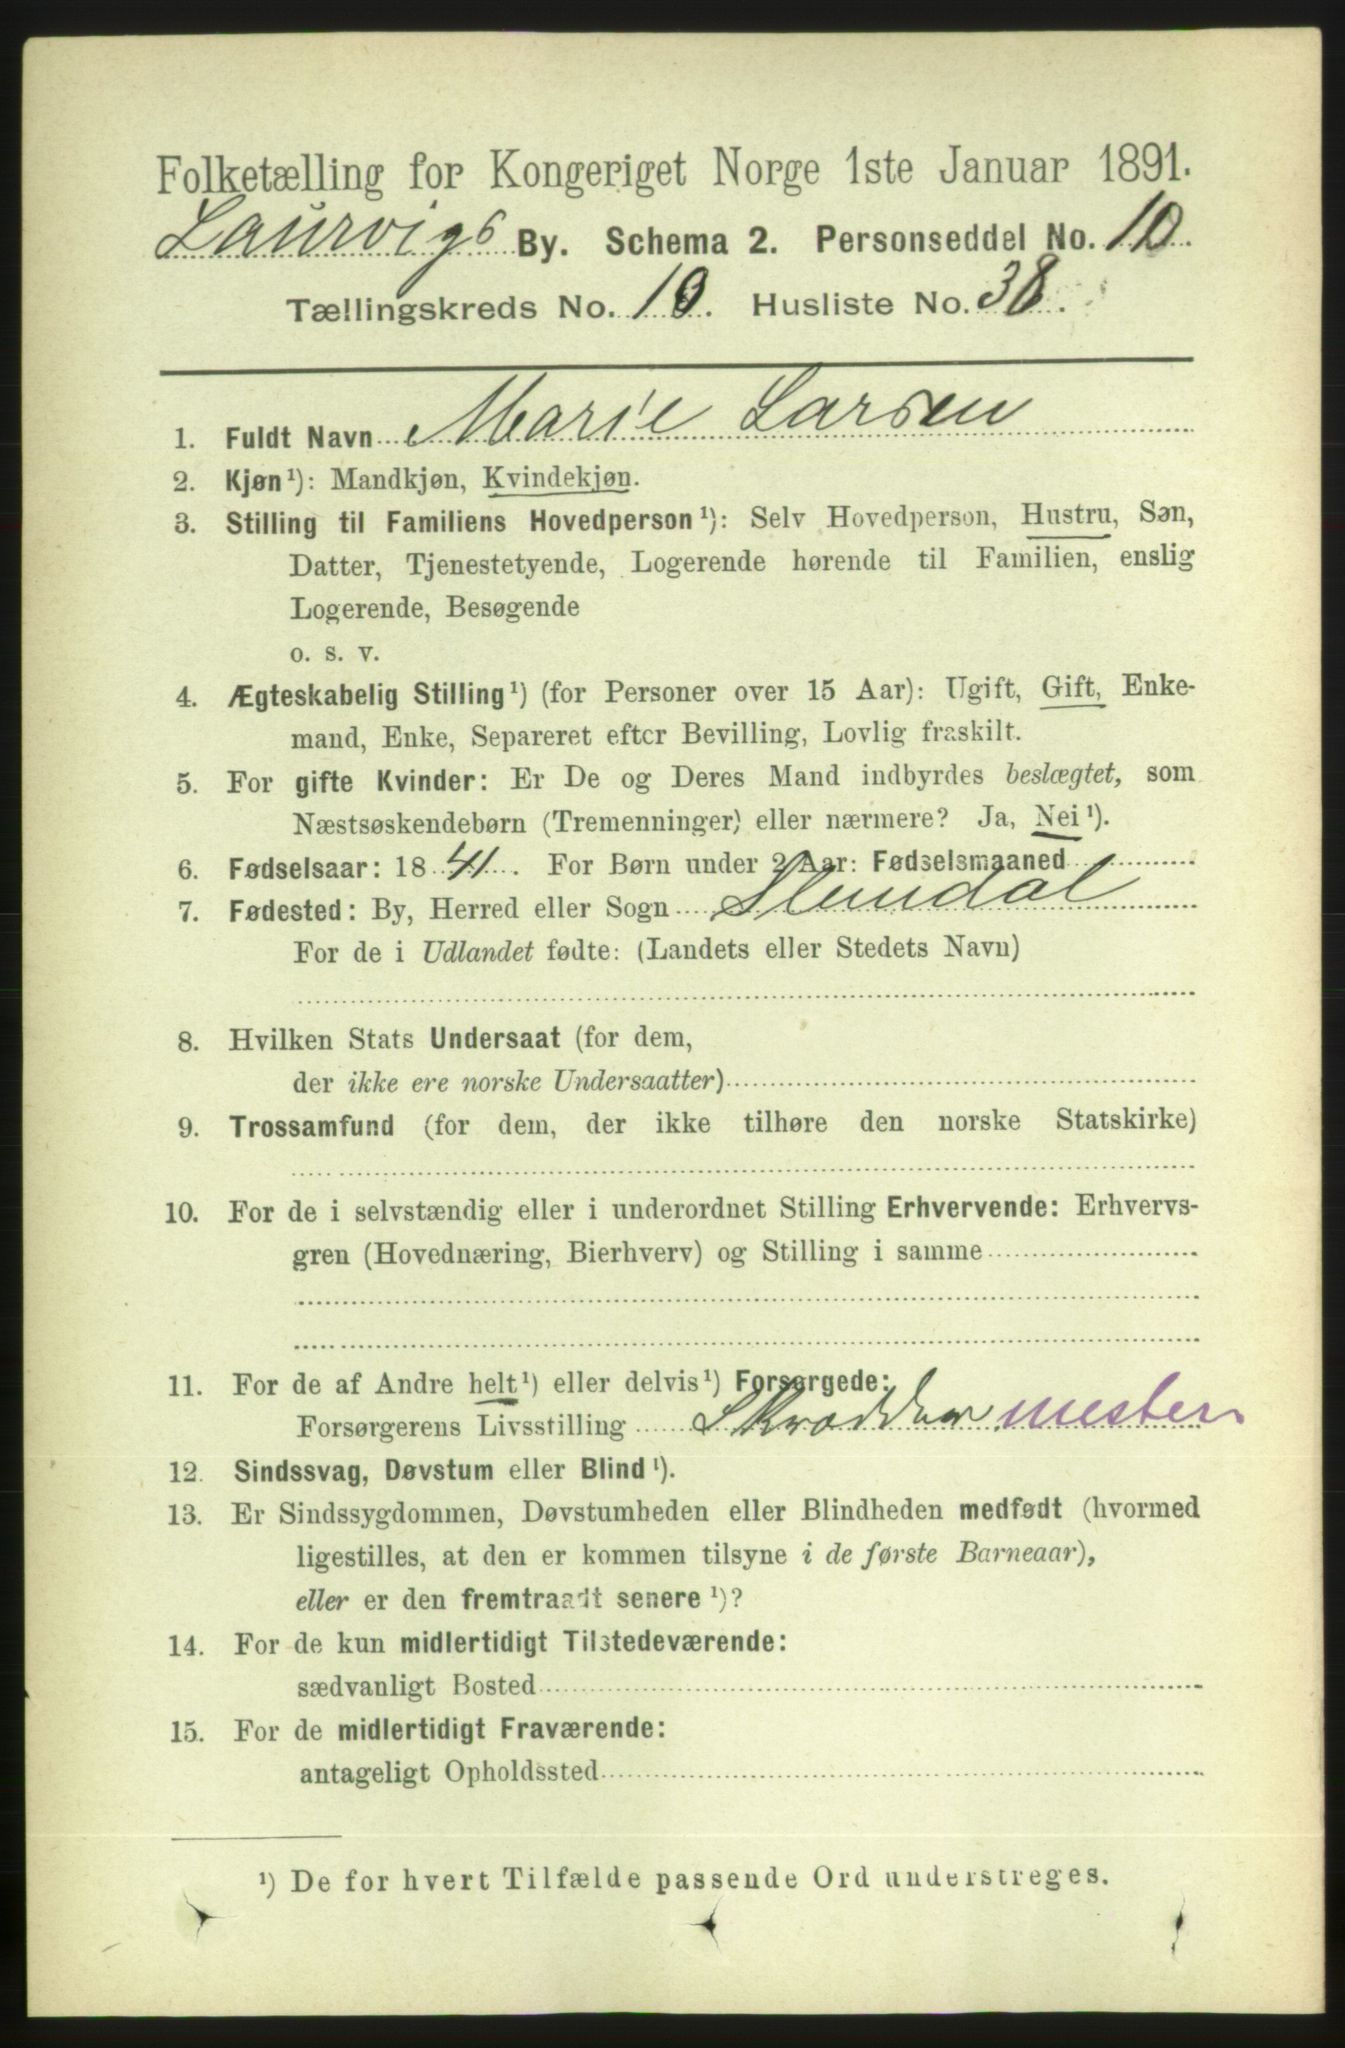 Folketælling for Kongeriget Norge 1ste Januar 1891.
Laurvigs By. Schema 2. Personseddel No. 10.
Tællingskreds No. 10. Husliste No. 38.
1. Fuldt Navn Marie Larsen
2. Kjøn¹): Mandkjøn, Kvindekjøn.
3. Stilling til Familiens Hovedperson¹): Selv Hovedperson, Hustru, Søn,
Datter, Tjenestetyende, Logerende hørende til Familien, enslig
Logerende, Besøgende
o. s. v.
4. Ægteskabelig Stilling¹) (for Personer over 15 Aar): Ugift, Gift, Enke-
mand, Enke, Separeret efter Bevilling, Lovlig fraskilt.
5. For gifte Kvinder: Er De og Deres Mand indbyrdes beslægtet, som
Næstsøskendebørn (Tremenninger) eller nærmere? Ja, Nei¹).
6. Fødselsaar: 1841. For Børn under 2 Aar: Fødselsmaaned
7. Fødested: By, Herred eller Sogn
For de i Udlandet fødte: (Landets eller Stedets Navn)
8. Hvilken Stats Undersaat (for dem,
der ikke ere norske Undersaatter)
9. Trossamfund (for dem, der ikke tilhøre den norske Statskirke)
10. For de i selvstændig eller i underordnet Stilling Erhvervende: Erhvervs-
gren (Hovednæring, Bierhverv) og Stilling i samme
11. For de af Andre helt¹) eller delvis¹) Forsørgede:
Forsørgerens Livsstilling Skrædder mester
12. Sindssvag, Døvstum eller Blind¹).
13. Er Sindssygdommen, Døvstumheden eller Blindheden medfødt (hvormed
ligestilles, at den er kommen tilsyne i de første Barneaar),
eller er den fremtraadt senere¹)?
14. For de kun midlertidigt Tilstedeværende:
sædvanligt Bosted
15. For de midlertidigt Fraværende:
antageligt Opholdssted
¹) De for hvert Tilfælde passende Ord understreges.